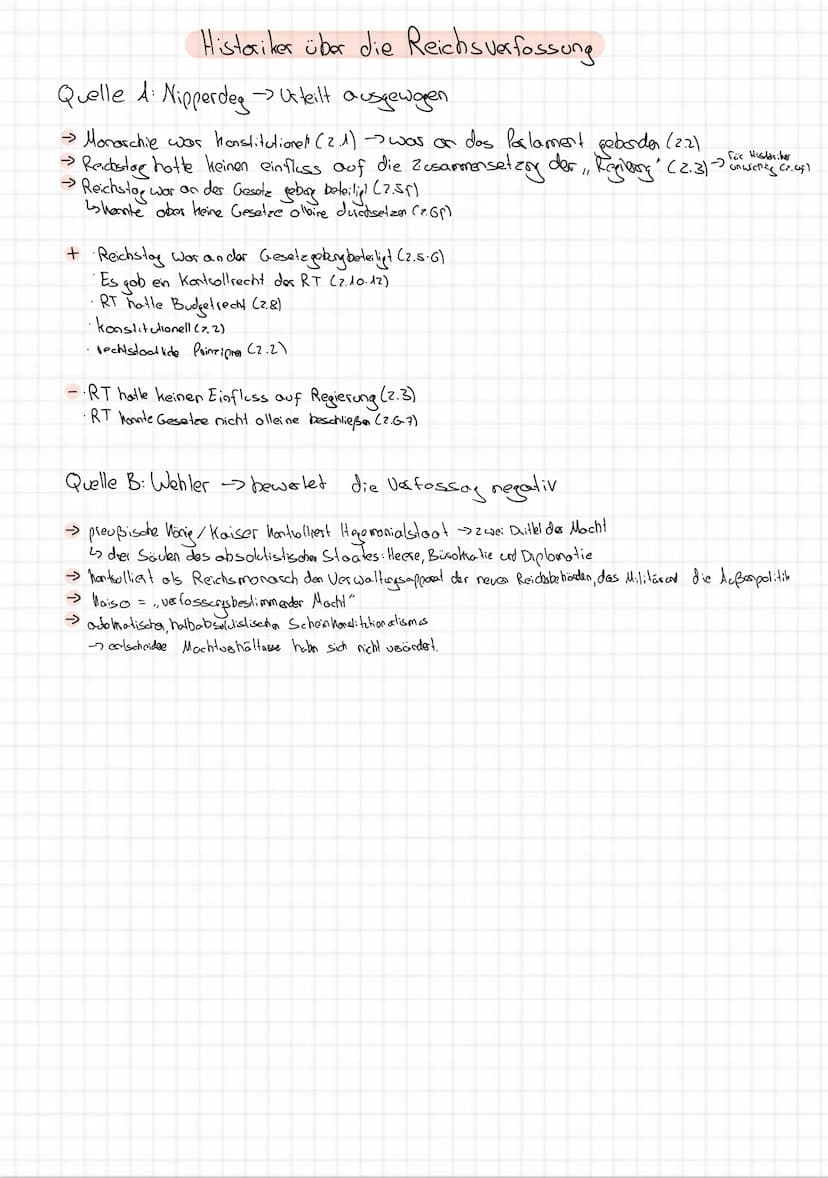 Historiker über die Reichsverfassung
Quelle A: Nipperdey → Urteilt ausgewogen
→ Monarchie war konstitutionell (Z.1) → war an das Parlament gebunden (Z.2)
→ Reichstag hatte keinen einfluss auf die Zusammensetzung der „Regierung" (Z.3) → für Historiker unwichtig (Z.4f)
→ Reichstag war an der Gesetz gebung beteiligt (Z.5f)
↳ konnte aber keine Gesetze alleine durchsetzen (Z.6f)
+ · Reichstag war an der Gesetzgebung beteiligt (Z.5-6)
· Es gab ein Kontrollrecht des RT (Z.10-12)
· RT hatte Budgetrecht (Z.8)
· konstitutionell (Z.2)
· rechtstaatliche Prinzipien (Z.2)
- · RT hatte keinen Einfluss auf Regierung (Z.3)
· RT konnte Gesetze nicht alleine beschließen (Z.6-7)
Quelle B: Wehler → bewertet die Verfassung negativ
→ preußische König / Kaiser kontrolliert Hegemonialstaat → zwei Drittel der Macht
↳ drei Säulen des absolutistischen Staates: Heere, Bürokratie und Diplomatie
→ kontrolliert als Reichsmonarch den Verwaltungsapparat der neuen Reichsbehörden, das Militär und die Außenpolitik
→ Kaiser = „verfassungsbestimmender Macht"
→ halbabsolutistischen Scheinkonstitutionalismus
→ entscheidende Machtverhältnisse haben sich nicht verändert.